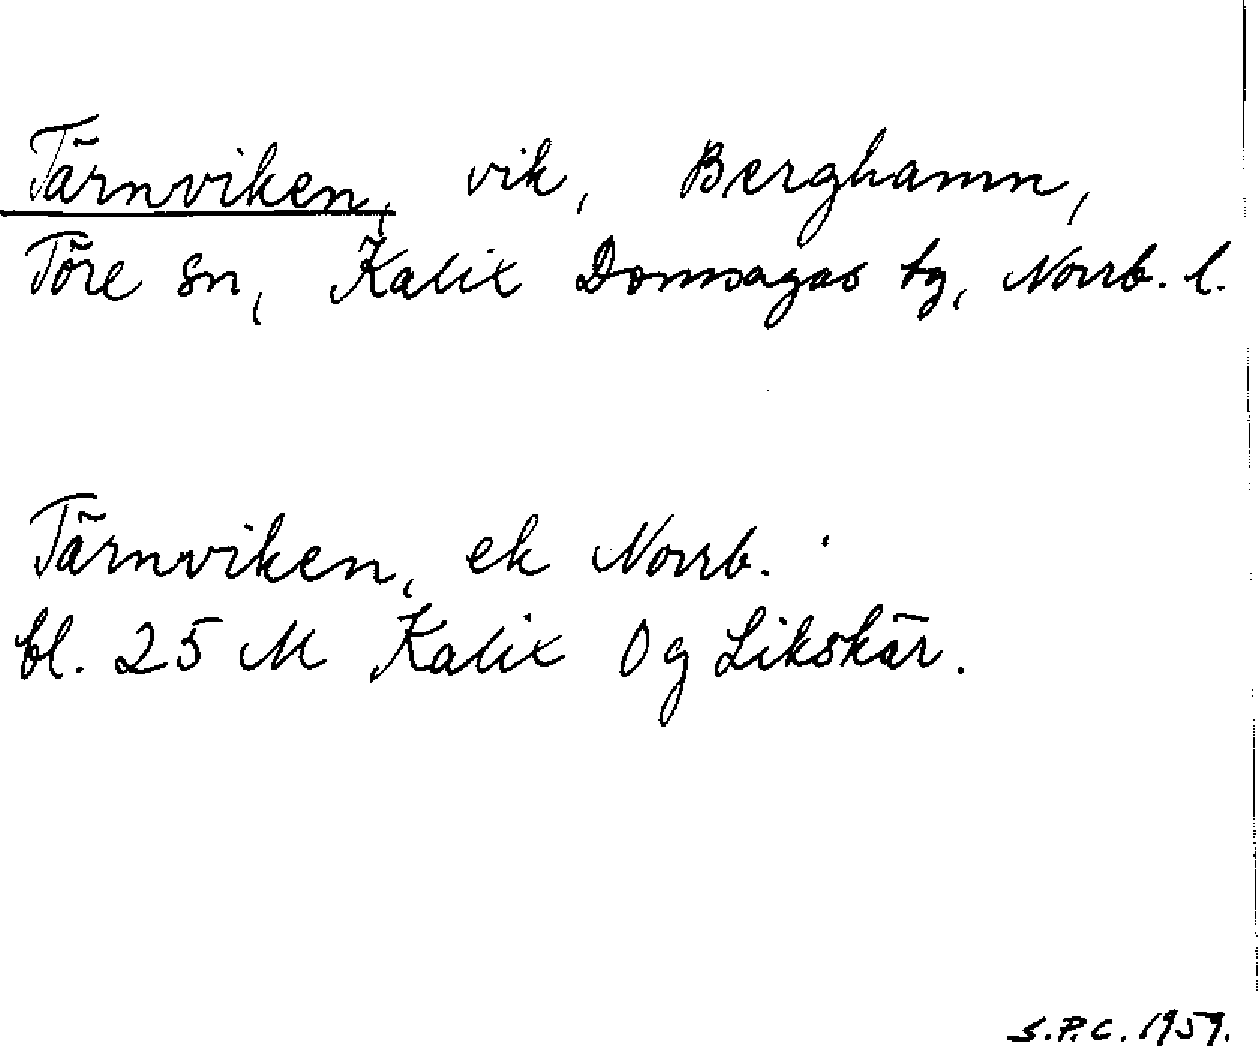 Tärnviken, vik, Berghamn,
Töre sn, Kalix Domsagas tg, Norrb. l.
Tärnviken, ek Norrb.
bl. 25 M Kalix Og Likskär.
S.P.C. 1959.